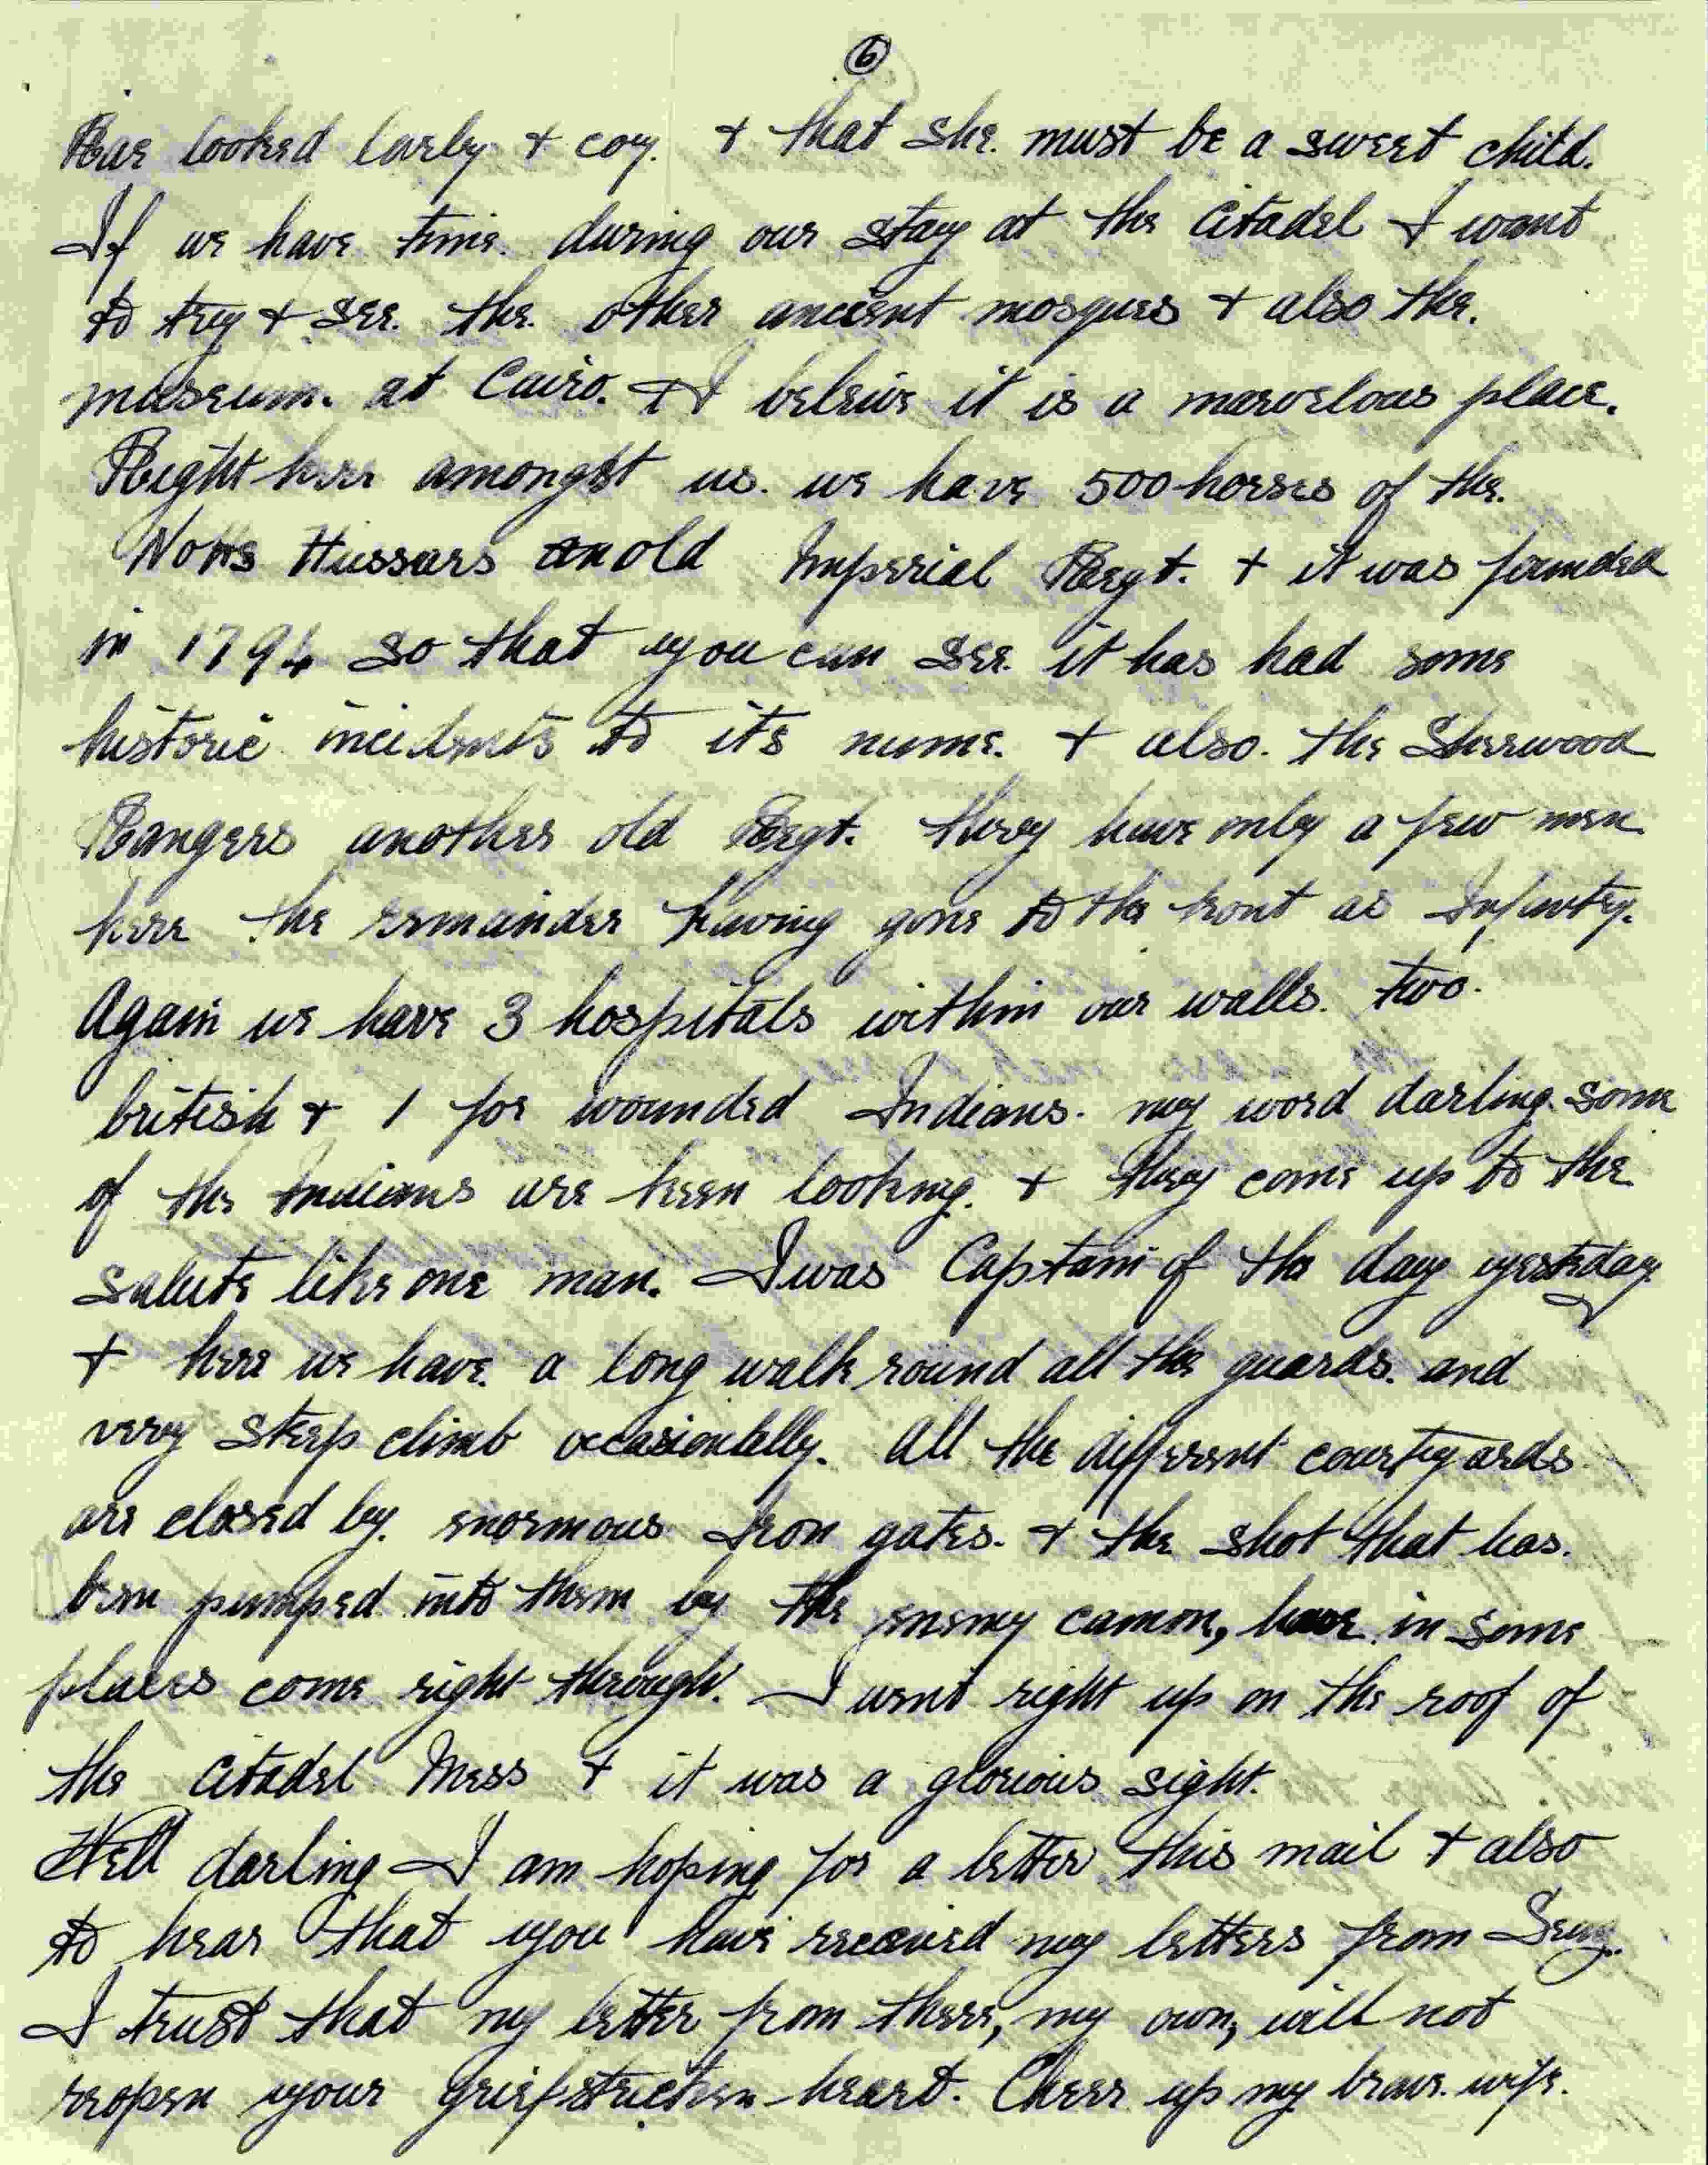 6
Rae looked lovely & coy. & that she must be a sweet child.
If we have time during our stay at the Citadel I want
to try & see the other ancient mosques & also the
museum at Cairo. & I beleive it is a marvelous place.
Right here amongst us we have 500 horses of the
Notts Hussars an old Imperial Regt. & it was founded
in 1794 so that you can see it has had some
historic incidents to its name & also the Sherwood
Rangers another old Regt. they have only a few men
here the remainder having gone to the front as Infantry.
Again we have 3 hospitals within our walls. two
british & 1 for wounded Indians. my word darling some
of the Indians are keen looking. & they come up to the
salute like one man. I was Captain of the day yesterday
& here we have a long walk round all the guards. and
very steep climb occasionally. All the different courtyards
are closed by enormous Iron gates. & the shot that has
been pumped into them by the enemy cannon, have in some
places come right through. I went right up on the roof of
the Citadel Mess & it was a glorious sight.
Well darling I am hoping for a letter this mail & also
to hear that you have received my letters from
I trust that my letter from there, my own, will not
reopen your griefstricken heart. Cheer up my brave wife.